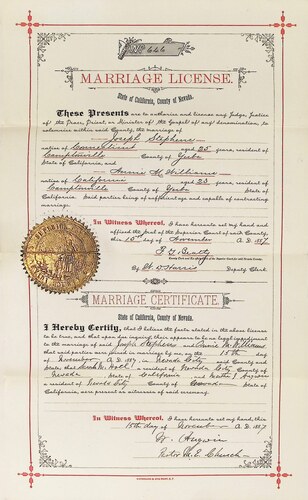 No. 666
MARRIAGE LICENSE.
State of California, County of Nevada.
These Presents are to authorize and license any Judge, Justice
of the Peace, Priest, or Minister of the Gospel of any denomination, to
solemnize within said County, the marriage of
Joseph Stephens
native of Connecticut aged 25 years, resident of
Camptonville County of Yuba
State of California, and
Annie M. Williams
native of California aged 23 years, resident of
Camptonville County of Yuba State of
California. Said parties being of sufficient age and capable of contracting
marriage.
In Witness Whereof, I have hereunto set my hand and
affixed the Seal of the Superior Court of said County,
this 15th day of November A. D. 1887
Deputy Clerk
MARRIAGE CERTIFICATE.
State of California, County of Nevada.
I Hereby Certify, that I believe the facts stated in the above license
to be true, and that upon due inquiry there appears to be no legal impediment
to the marriage of said Joseph Stephens and Annie M. Williams
that said parties were joined in marriage by me, on the 15th day
of November A. D. 1887, in Nevada City County and
State; that a resident of Nevada City County of
Nevada State of California and
a resident of Nevada City County of State of
California, were present as witnesses of said ceremony.
In Witness Whereof, I have hereunto set my hand, this
15th day of November A. D. 1887
Church